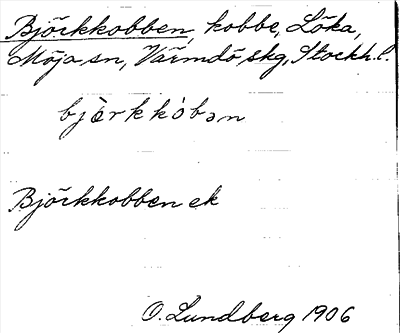 Björkkobben, kobbe, Löka,
Möja sn, Värmdö skg, Stockh. l.
bjèrkkòbən
Björkkobben ek
O. Lundberg 1906